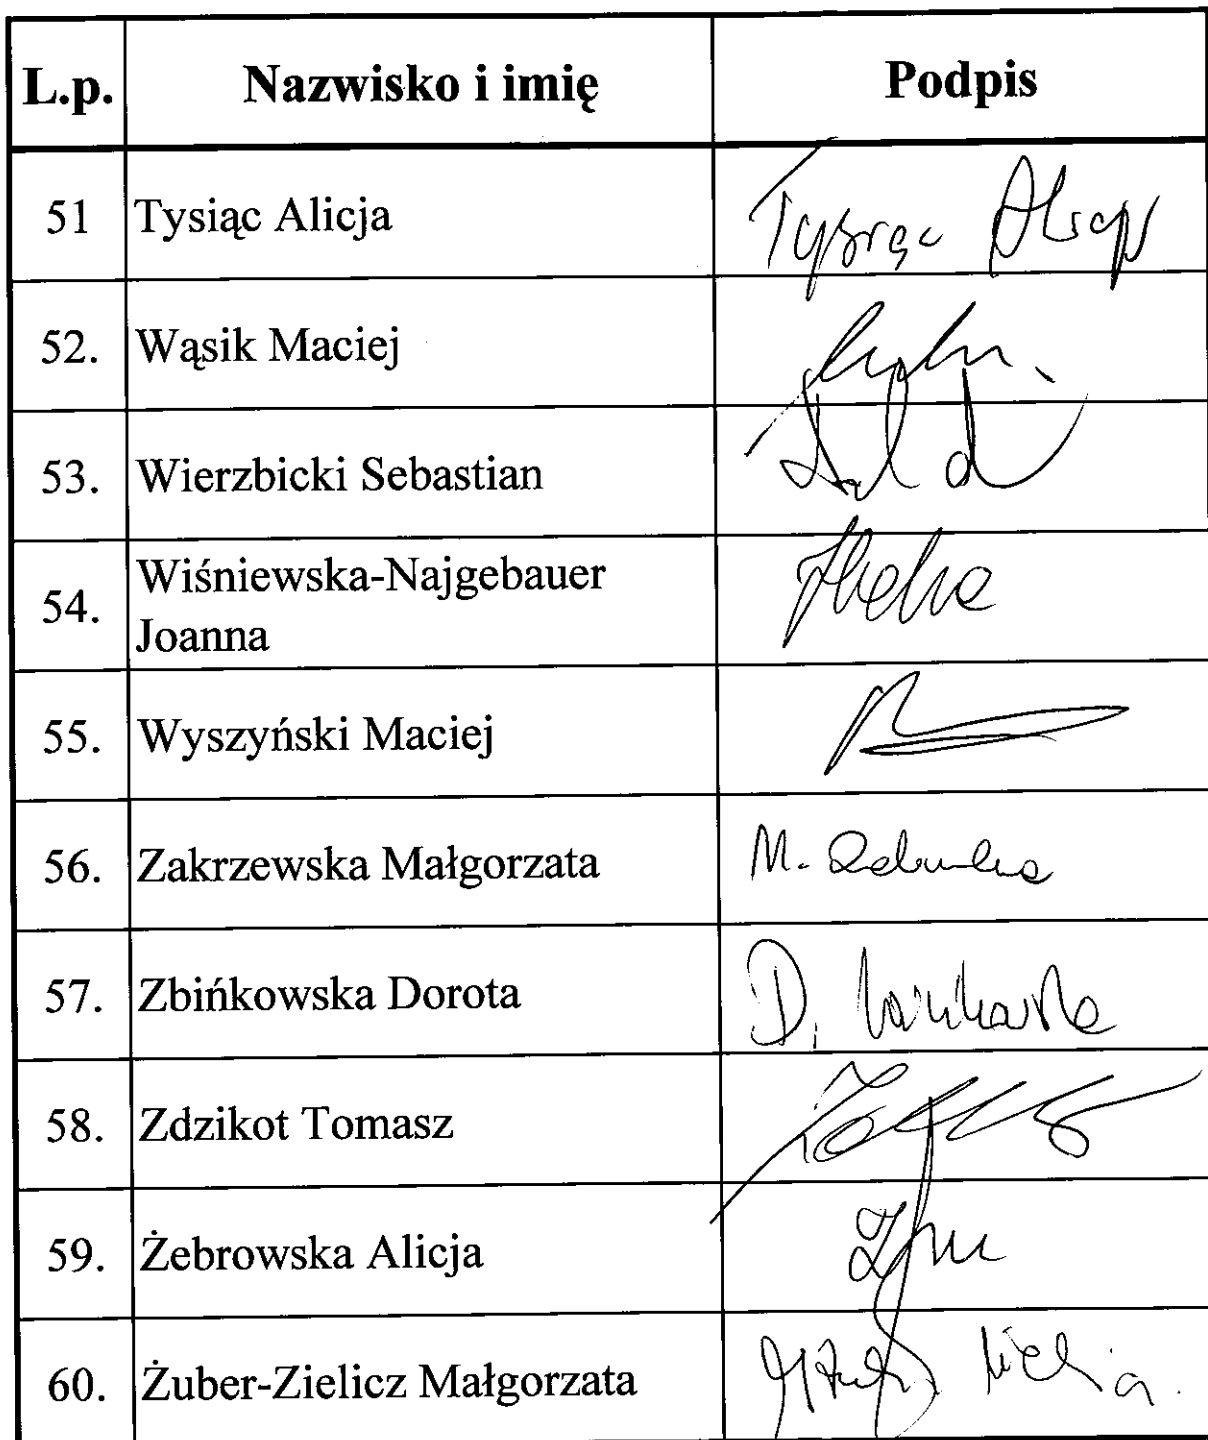 L.p. Nazwisko i imię Podpis
51 Tysiąc Alicja Tysiąc Alicja
52. Wąsik Maciej
53. Wierzbicki Sebastian
54. Wiśniewska-Najgebauer
Joanna
55. Wyszyński Maciej
56. Zakrzewska Małgorzata M.
57. Zbińkowska Dorota D.
58. Zdzikot Tomasz
59. Żebrowska Alicja
60. Żuber-Zielicz Małgorzata